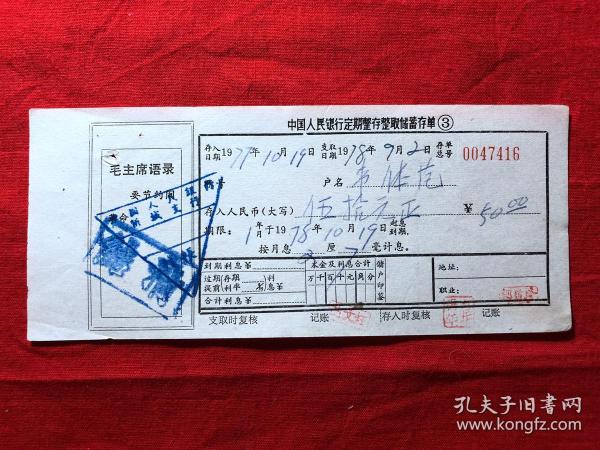 中国人民银行定期整存整取储蓄存单③
毛主席语录
要节约闹
革命
存入日期 1977年10月19日 支取日期 1978年9月2日 存单总号 0047416
户名
存入人民币(大写) 伍拾元正 ¥50.00
期限:1年 于1978年10月19日 起息 到期.
按月息 厘 毫计息.
到期利息¥ 本金及利息合计 储户印鉴 地址:
过期(存期 )利
提前(利率 )息¥ 万千百十元角分
合计利息¥ 职业:
支取时复核 记账 存入时复核 记账
孔夫子旧书网
www.kongfz.com